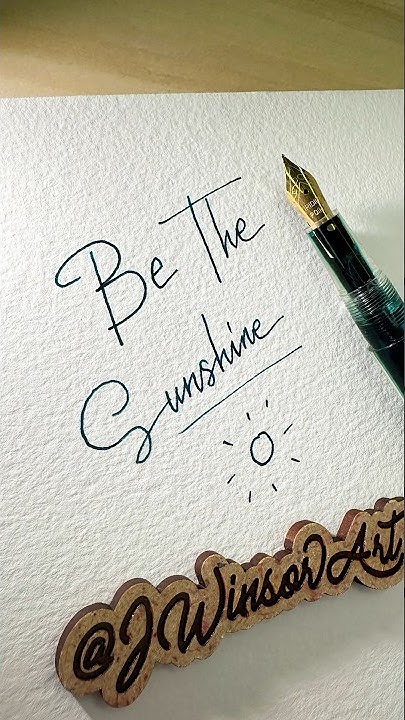 Be The
Sunshine
@JWinsorArt